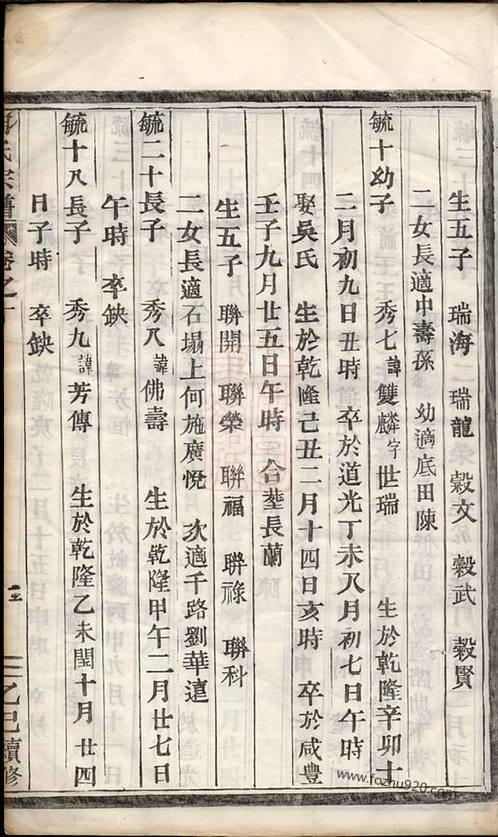 生五子 瑞海 二瑞龍 榖文 榖武 榖賢
二女長適中壽孫 幼適底田陳
毓十幼子 秀七諱雙麟字世瑞 生於乾隆辛卯十
二月初九日丑時 卒於道光丁未八月初七日午時
娶吳氏 生於乾隆己丑二月十四日亥時 卒於咸豐
壬子九月廿五日午時 合塟長蘭
生五子 聯開 聯榮 聯福 聯祿 聯科
二女長適石塌上何施廣悅 次適千路劉華遠
毓二十長子 秀八諱佛壽 生於乾隆甲午二月廿七日
午時 卒缺
毓十八長子 秀九諱芳傳 生於乾隆乙未閏十月廿四
日子時 卒缺
氏宗譜 卷之十
乙巳續修
www.fozhu920.com